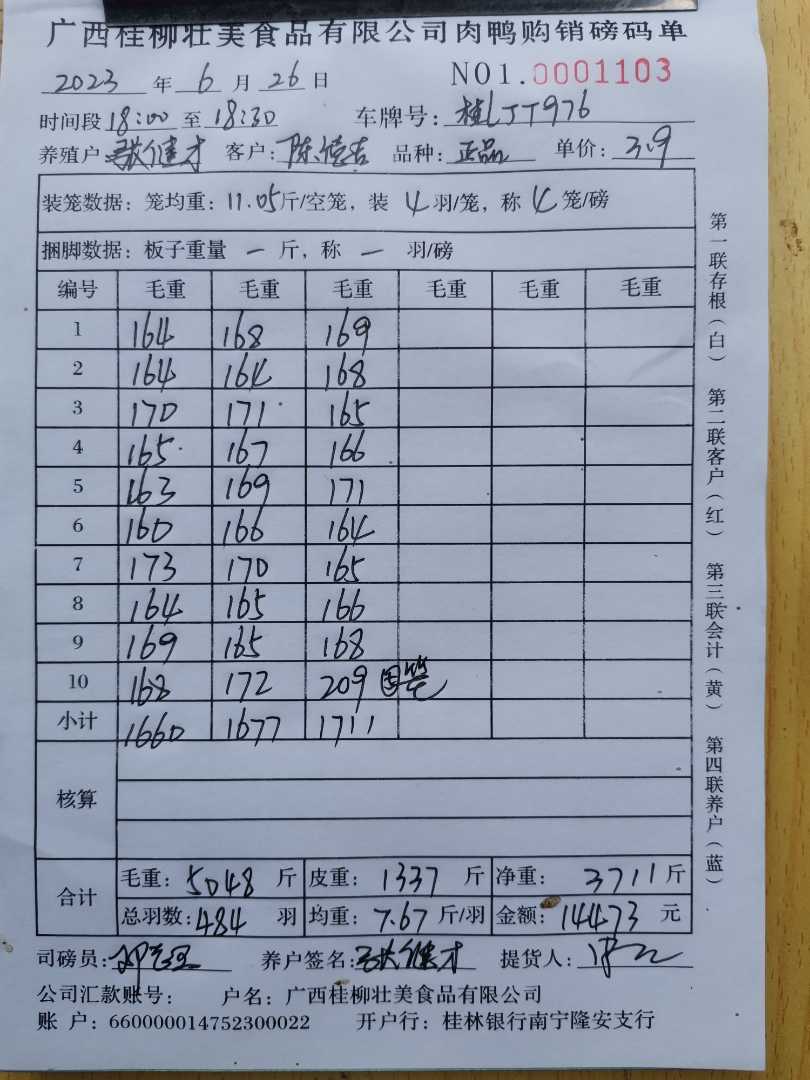 广西桂柳壮美食品有限公司肉鸭购销磅码单
2023 年 6 月 26 日 NO1.0001103
时间段 18:00 至 18:30 车牌号: 桂LJT976
养殖户 张继才 客户: 陈德吉 品种: 正品 单价: 3.9
装笼数据: 笼均重: 11.05斤/空笼, 装 4 羽/笼, 称 4 笼/磅
捆脚数据: 板子重量 一 斤, 称 一 羽/磅
编号 毛重 毛重 毛重 毛重 毛重 毛重
1 164 168 169
2 164 164 168
3 170 171 165
4 165 167 166
5 163 169 171
6 160 166 164
7 173 170 165
8 164 165 166
9 169 165 168
10 168 172 209 笼
小计 1660 1677 1711
核算
合计
毛重: 5048 斤 皮重: 1337 斤 净重: 3711 斤
总羽数: 484 羽 均重: 7.67 斤/羽 金额: 14473 元
司磅员: 养户签名: 张继才 提货人:
公司汇款账号: 户名: 广西桂柳壮美食品有限公司
账 户: 660000014752300022 开户行: 桂林银行南宁隆安支行
第一联存根(白) 第二联客户(红) 第三联会计(黄) 第四联养户(蓝)